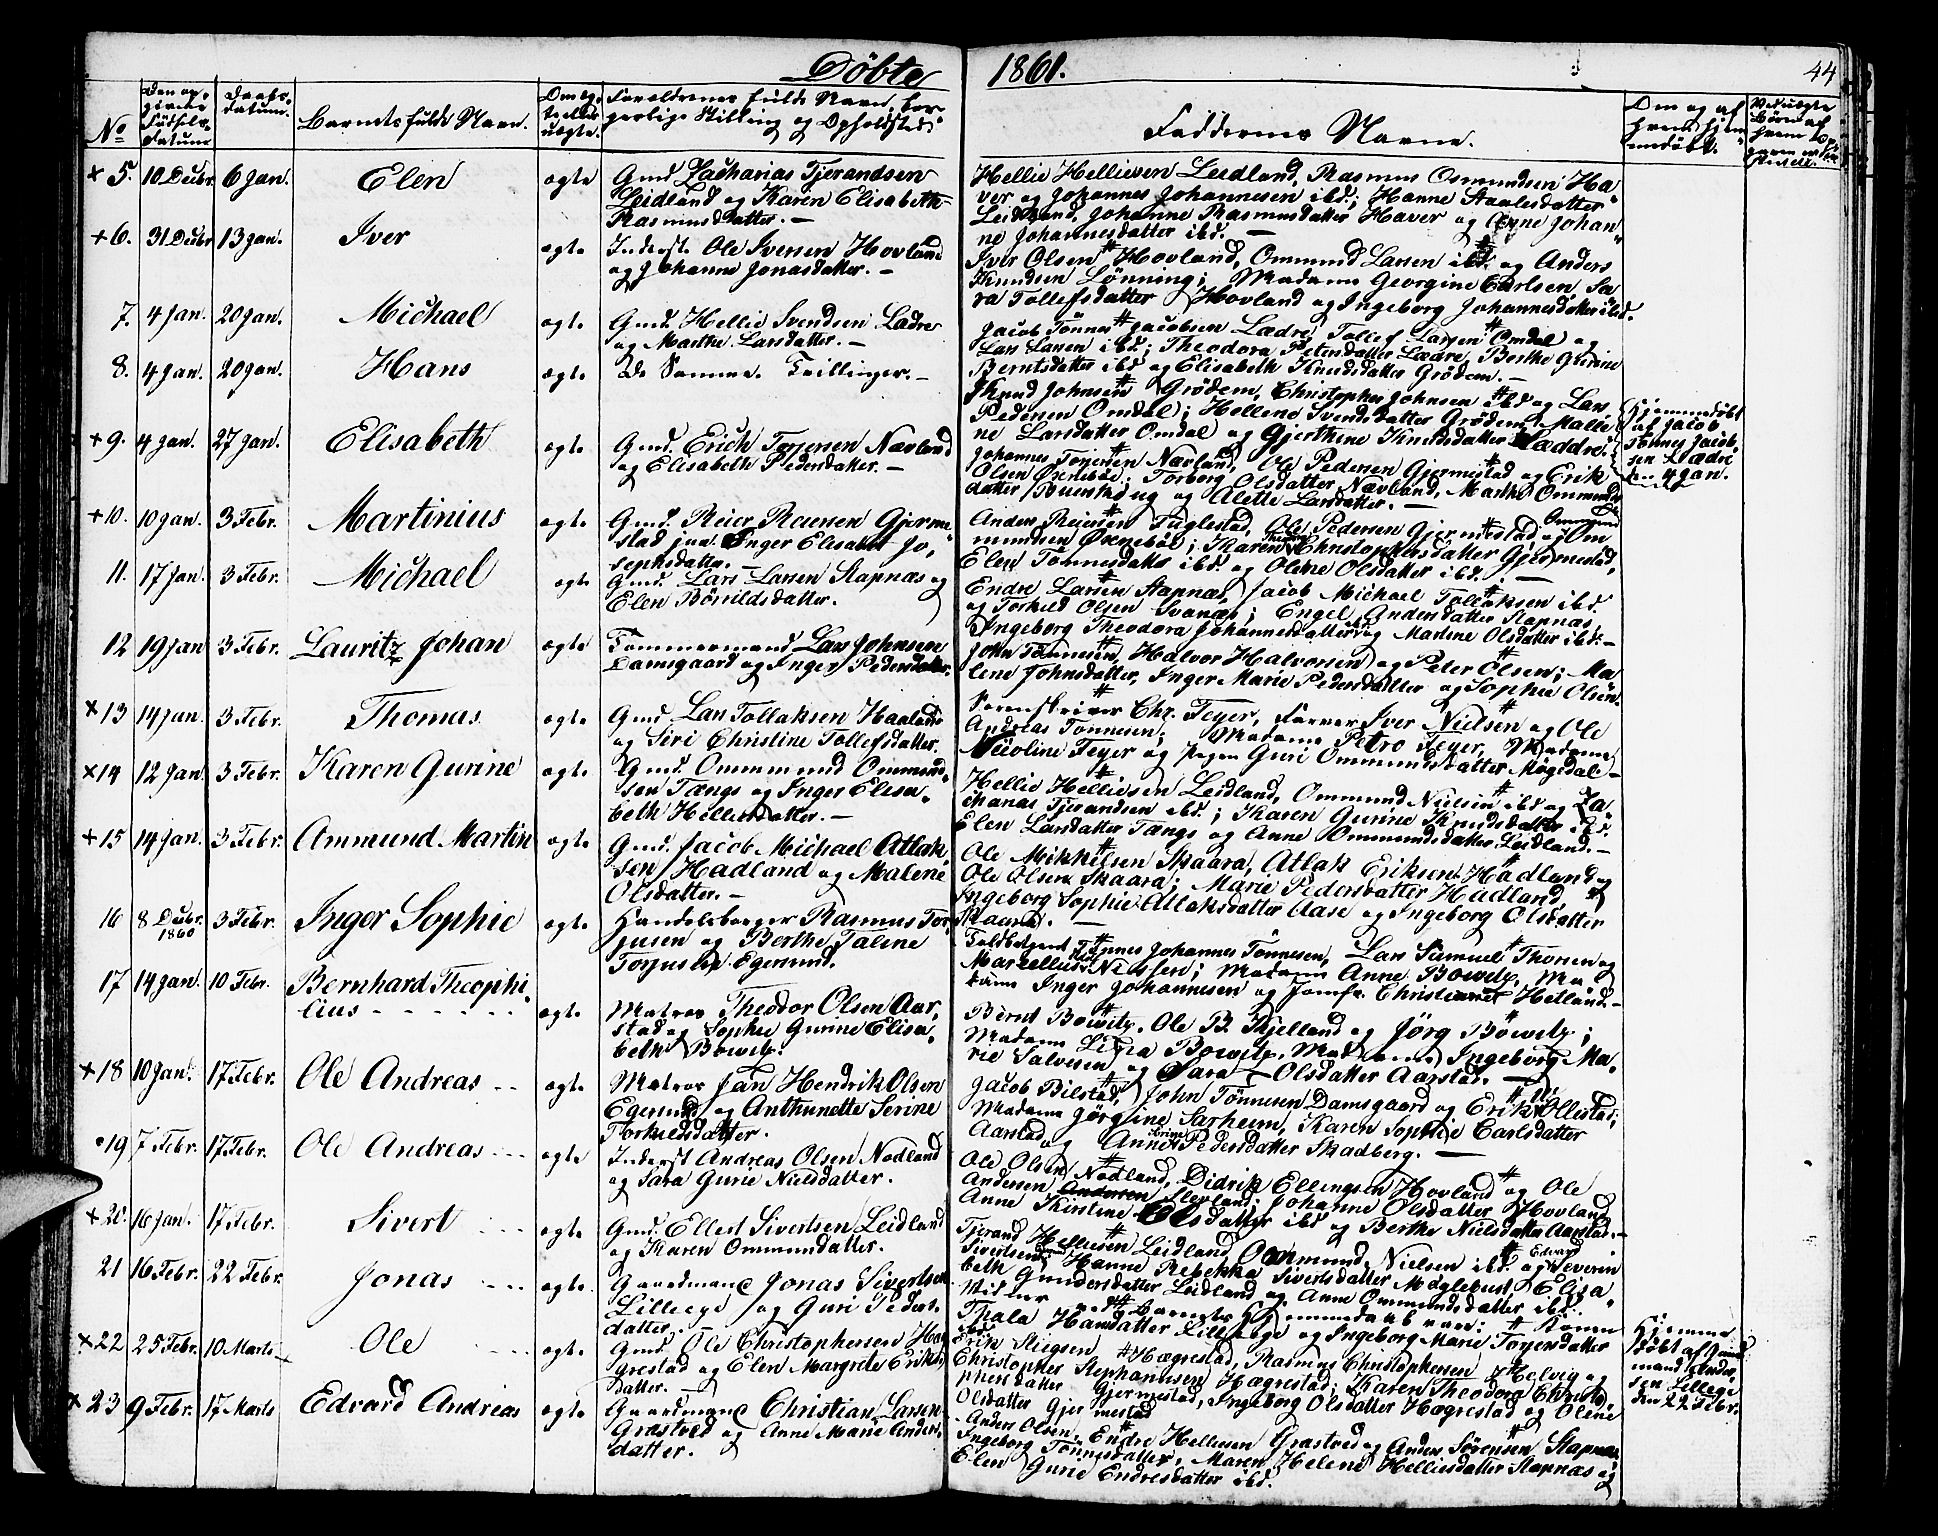 Døbte 1861. 44
No
Den op-
givne
Fødsels-
datum
Daabs-
datum.
Barnets fulde Navn.
Om æg-
te eller
uægte.
Forældrenes fulde Navn, bor-
gerlige Stilling og Opholdsted
Faddernes Navne.
Om og af
hvem hjem-
medøbt.
+5. 10 Decbr 6 Jan. Elen ægte
Gmd. Zacharias Tjerandsen
Leidland og Karen Elisabeth
Rasmusdatter. –
Hellie Helliesen Leidland, Rasmus Osmundsen Ha-
ver og Johannes Johannesen ibd; Hanne Staalesdatter
Leidland, Johanne Rasmusdatter Haver og Anne Johan-
ne Johannesdatter ibd. –
+6. 31 Decbr 13 Jan. Iver ægte
Inderst Ole Iversen Hovland
og Johanne Jonasdatter. –
Iver Olsen Hovland, Ommund Larsen ibd. og Anders
Knudsen Lønning; Madame Georgine Carlsen, Sa-
ra Tollefsdatter Hovland og Ingeborg Johannesdatter ibd.
7. 4 Jan. 20 Jan. Michael ægte
Gmd. Hellie Svendsen Lædre
og Marthe Larsdatter. –
Jacob Tønnes Jacobsen Lædre, Tollef Larsen Omdal og
Lars Larsen ibd; Theodora Petersdatter Lædre, Berthe Gurine
Berntsdatter ibd og Elisabeth Knudsdatter Grødem. –
8. 4 Jan. 20 Jan. Hans ægte
De Samme. Tvillinger. –
Knud Johnsen Grødem, Christopher Johnsen ibd og Lars
Pedersen Omdal; Hellene Svendsdatter Grødem, Malle-
ne Larsdatter Omdal og Gjerthine Knudsdatter Læddre.
Hjemmedøbt
af Jacob
Tønnes Jacob-
sen Lædre
den 4 Jan.
+9. 4 Jan. 27 Jan. Elisabeth ægte
Gmd. Erich Torjersen Nævland
og Elisabeth Pedersdatter. –
Johannes Torjersen Nævland, Ole Pedersen Gjermestad og Erik
Olsen Øxnebøe; Torborg Olsdatter Nævland, Marthe Ommunds-
datter Buerskoug og Alette Larsdatter. –
+10. 10 Jan. 3 Febr. Martinius ægte
Gmd. Reier Reiersen Gjerme-
stad jun. Inger Elisabet Jo-
sephsdatter. –
Anders Reiersen Fuglestad, Ole Pedersen Gjermestad og Om-
mundsen Øxnebøe; Karen Christophersdatter Gjermestad,
Elen Tønnesdatter ibd. og Oline Olsdatter ibd. –
11. 17 Jan. 3 Febr. Michael ægte
Gmd. Lars Larsen Stapnæs og
Elen Børildsdatter.
Endre Larsen Stapnæs, Jacob Michael Tollaksen ibd.
og Torkild Olsen Svanæs; Engel Andersdatter Stapnæs,
Ingeborg Theodora Johannesdatter og Martine Olsdatter ibd. –
12 19 Jan 3 Febr. Lauritz Johan ægte
Tømmermand Lars Johnsen
Damsgaard og Inger Pedersdatter.
John Tønnesen, Halvor Halvorsen og Peter Olsen; Ma-
lene Johnsdatter, Inger Marie Pedersdatter og Sophie Olsen.
×13 14 Jan. 3 Febr. Thomas ægte
Gmd. Lars Tollaksen Haaland
og Siri Christine Tollefsdatter.
Sorenskriver Chr. Feyer, Farver Iver Nielsen og Ole
Andreas Tønnesen; Madame Petro Feyer, Madame
Nicoline Feyer og Pigen Guri Ommundsdatter Møgedal. –
×14 12 Jan. 3 Febr. Karen Gurine ægte
Gmd. Ommund Ommund-
sen Tængs og Inger Elisa-
beth Helliesdatter. –
Hellie Helliesen Leidland, Ommund Nielsen ibd og Za-
charias Tjerandsen ibd.; Karen Gurine Knudsdatter ibd.
Elen Larsdatter Tængs og Anne Ommundsdatter Leidland. –
+15 14 Jan. 3 Febr. Ammund Martin ægte
Gmd. Jacob Michael Atlak-
sen Hadland og Malene
Olsdatter. –
Ole Mikkelsen Skaara, Atlak Eriksen Hadland og
Ole Olsen Skaara; Marie Pedersdatter Hadland,
Ingeborg Sophie Atlaksdatter Aase og Ingeborg Olsdatter
Skaara. –
16 8 Decbr. 1860 3 Febr. Inger Sophie ægte
Handelsborger Rasmus Tor-
jusen og Berthe Taline
Torjusen Egersund.
Toldbetjent Tønnes Johannes Tønnesen, Lars Samuel Thorsen og
Marcellius Nissen; Madame Anne Bowitz, Ma-
dame Inger Johannesen og Jomfr. Christiane Hetland. –
17 14 Jan. 10 Febr. Bernhard Theophi-
lius ægte
Matros Theodor Olsen Aar-
stad og Sophie Gurine Elisa-
beth Bowitz.
Bernt Bowitz, Ole B. Kjelland og Jörg Böwitz;
Madame Bowitz, Madame Ingeborg Ma-
rie Salvesen og Sara Olsdatter Aarstad. –
+18 10 Jan. 17 Febr. Ole Andreas ægte
Matros Jan Hendrik Olsen
Egersund og Anthunette Serine
Torkildsdatter.
Jacob Bilstad, John Tønnesen Damsgaard og Erik Ollestad;
Madame Jørgine Sarheim, Karen Sophie Carlsdatter
Aarstad og Anne Serine Pedersdatter Skadberg. –
19 7 Febr. 17 Febr. Ole Andreas ægte
Inderst Andreas Olsen Nodland
og Sara Gurie Nielsdatter.
Ole Olsen Nodland, Didrik Ellingsen Hovland og Ole
Andersen Slevland; Johanne Olsdatter Hovland
Anne Kirstine Olsdatter ibd og Berthe Nielsdatter Aarstad. –
×20. 16 Jan. 17 Febr. Sivert ægte
Gmd. Ellert Sivertsen Leidland
og Karen Ommundsdatter.
Tjerand Helliesen Leidland, Ommund Nielsen ibd. og Severin Edvard
Sivertsen; Hanne Rebekka Sivertsdatter Møglebust, Elisa-
beth Gundersdatter Leidland og Anne Ommundsdatter ibd. –
21 16 Febr. 22 Febr. Jonas ægte
Gaardmand Jonas Sivertsen
Lilleege og Guri Peders-
datter.
Vidner ved Barnets Hjemmedaab vare: Konen
Thala Hansdatter Lilleege og Ingeborg Marie Torjersdatter
ibd.
Hjemme-
døbt af Gaard-
mand Ander-
sen Lillege
den 22 Febr.
×22 25 Febr. 10 Marts Ole ægte
Gmd. Ole Christophersen Hæ-
grestad og Elen Margrete Eriks-
datter.
Erik Stiegsen Hægrestad, Rasmus Christophersen Helvig og
Christopher Stephansen Hægrestad; Karen Theodora Christo-
phersdatter Gjermestad, Ingeborg Olsdatter Hægrestad og Olene
Olsdatter Gjermestad
×23 9 Febr. 17 Marts Edvard Andreas ægte
Gaardmand Christian Larsen
Græsteed og Anne Marie Anders-
datter.
Anders Olsen, Endre Helliesen Græsteed og Anders Sørensen Stapnæs,
Ingeborg Tønnesdatter, Maren Helene Helliesdatter Stapnæs og
Elen Gurie Endresdatter ibd.